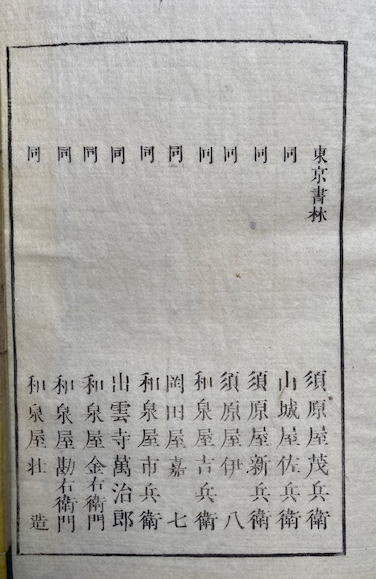 東京書林 須原屋茂兵衛
同 山城屋佐兵衛
同 須原屋新兵衛
同 須原屋伊八
同 和泉屋吉兵衛
同 岡田屋嘉七
同 和泉屋市兵衛
同 出雲寺萬治郎
同 和泉屋金右衛門
同 和泉屋勘右衛門
同 和泉屋壮造